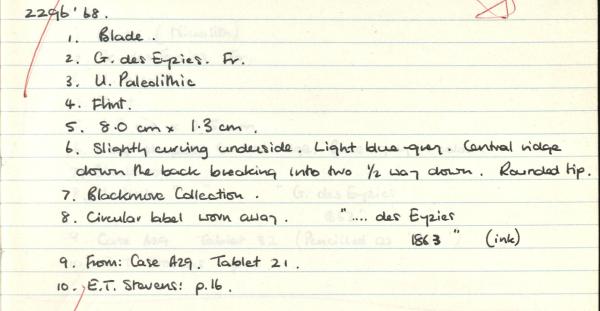 2296'68.
1. Blade.
2. G. des Eyzies. Fr.
3. U. Paleolithic
4. Flint.
5. 8.0 cm x 1.3 cm.
6. Slightly curving underside. Light blue-grey. Central ridge
down the back breaking into two 1/2 way down. Rounded tip.
7. Blackmore Collection.
8. Circular label worn away. ".... des Eyzies
1863" (ink)
9. From: Case A29. Tablet 21.
10. E.T. Stevens: p.16.